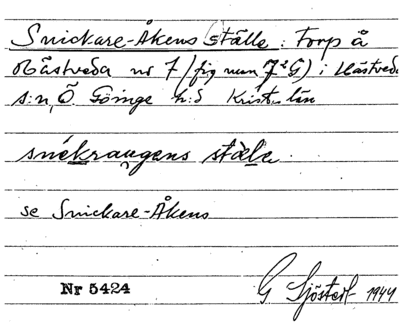 Snickare-Åkens ställe: Torp å
Hästveda nr 7 (fig num 7²G) i Hästveda
s:n, Ö. Göinge h:d Krist. län
snékraugens stäle.
se Snickare-Åkens
Nr 5424
G Sjöstedt 1944